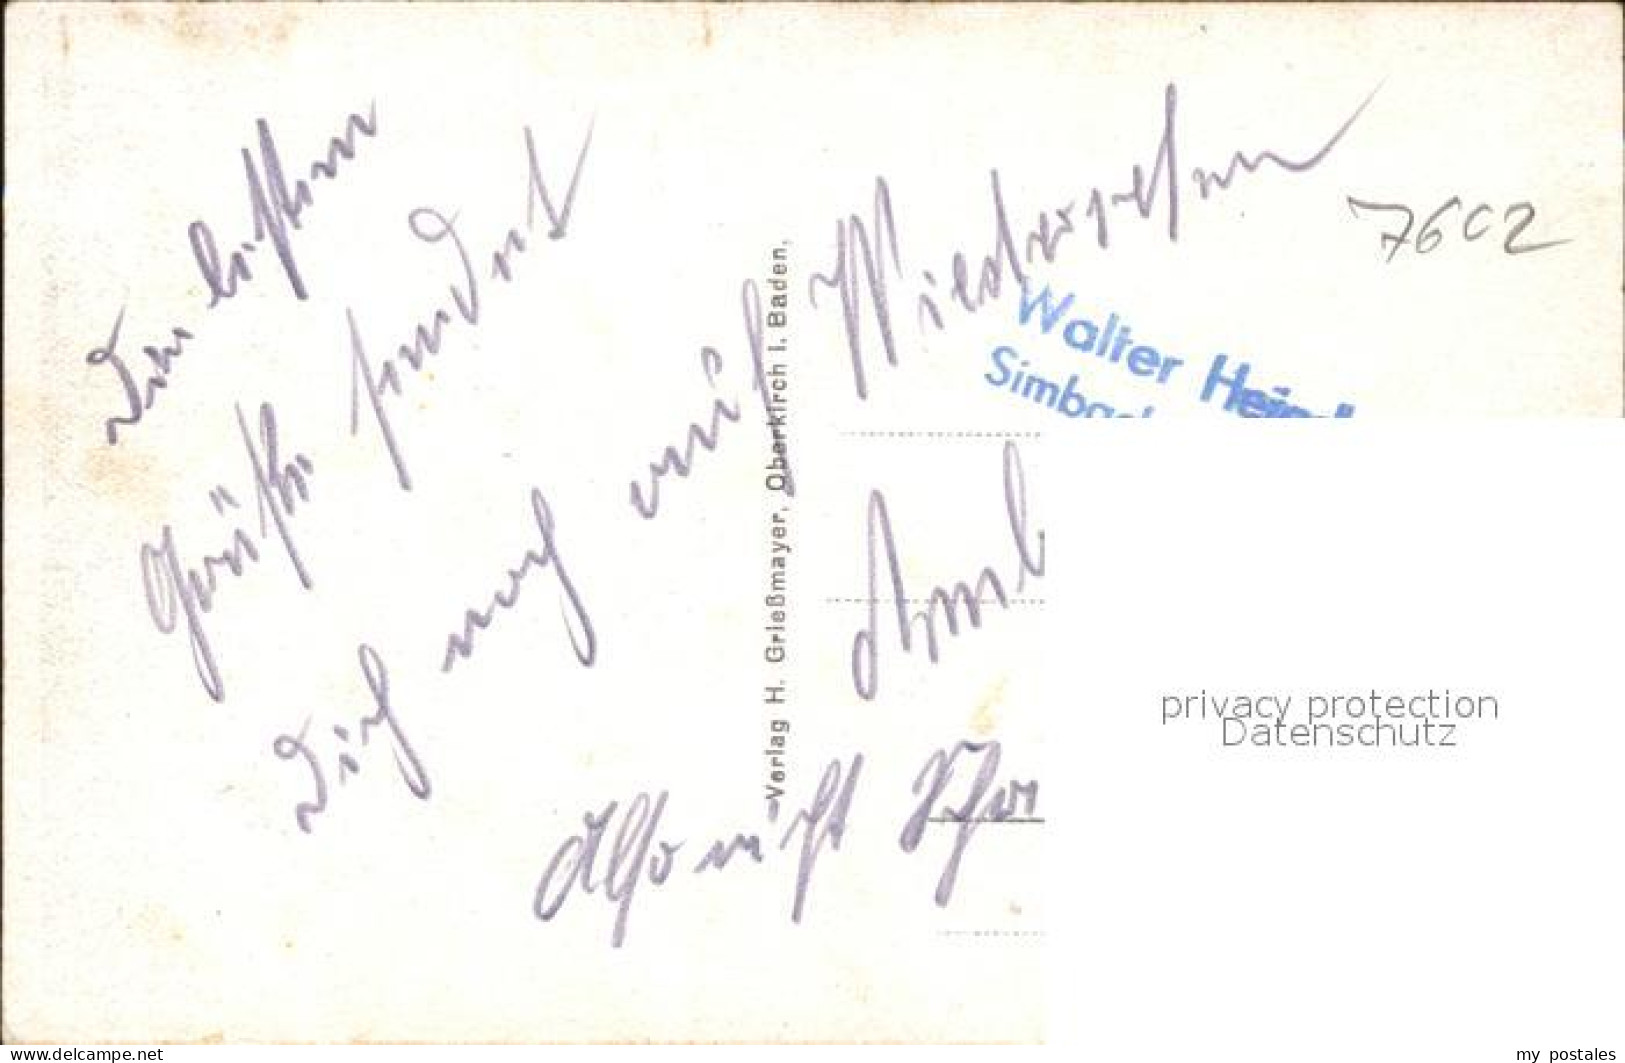 Die besten
Grüße sendet
Dich noch auf Wiedersehen
Also nicht
7602
Walter
Simbach
Verlag H. Grießmayer, Oberkirch i. Baden.
privacy protection
Datenschutz
www.delcampe.net
my postales